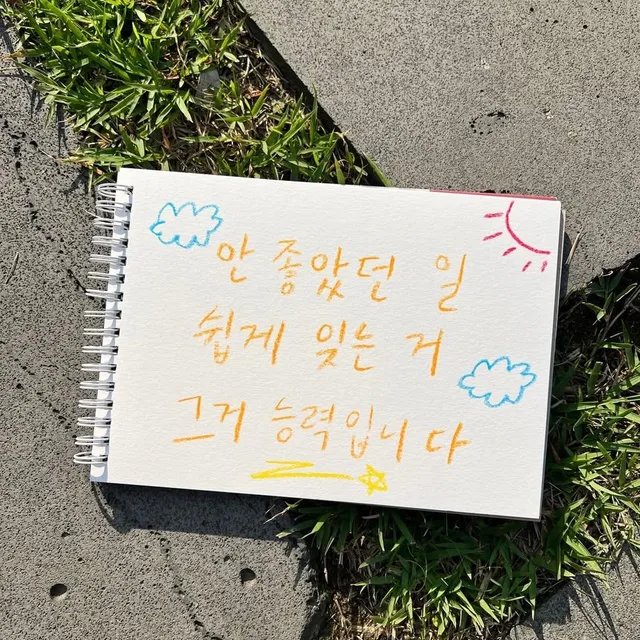 안 좋았던 일
쉽게 잊는 거
그거 능력입니다